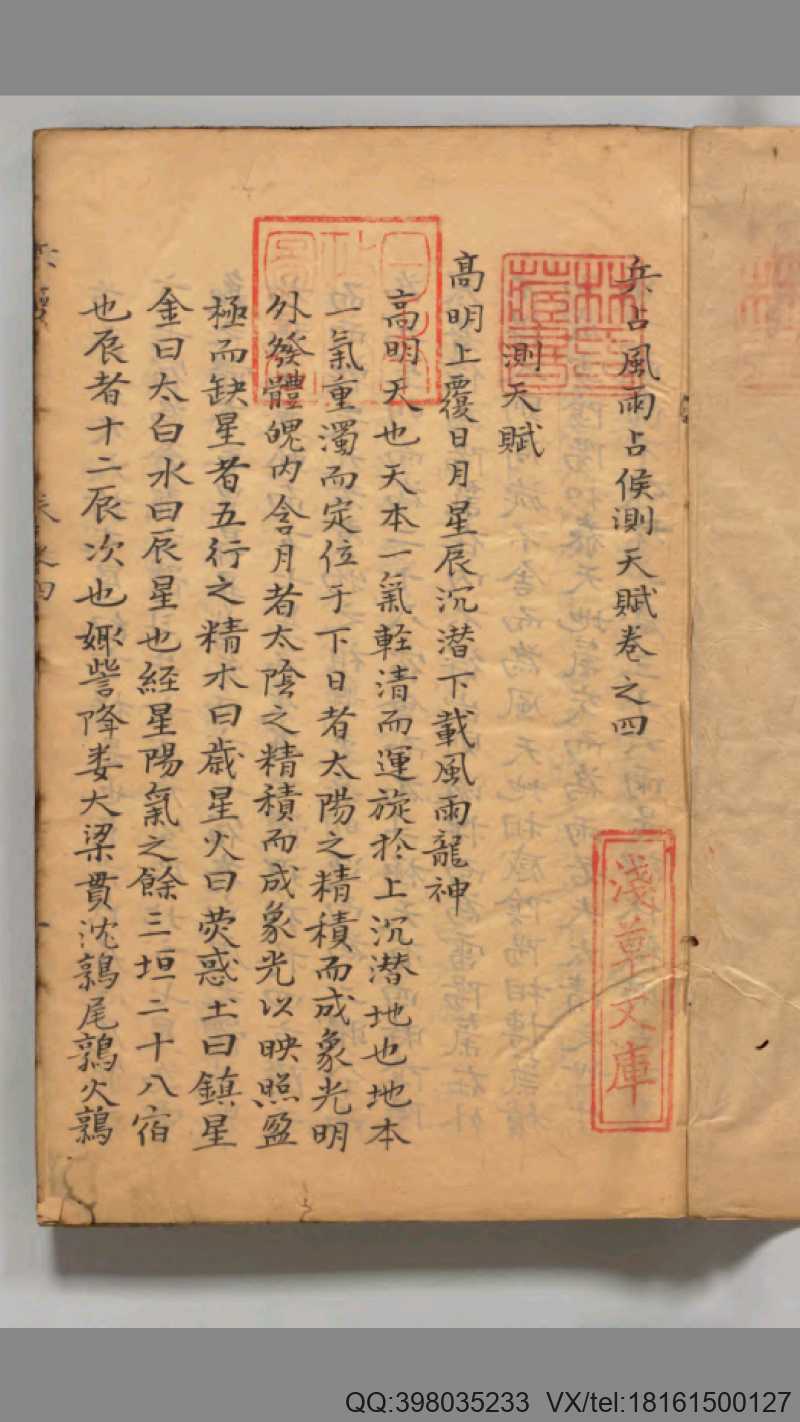 兵占風雨占候測天賦卷之四
測天賦
高明上覆日月星辰沉潜下載風雨龍神
高明天也天本一氣軽清而運旋於上沉潜地也地本
一氣重濁而定位于下日者太陽之精積而成象光明
外發體魄内含月者太陰之精積而成象光以映照盈
極而缺星者五行之精木曰歳星火曰荧惑土曰鎮星
金曰太白水曰辰星也経星陽氣之餘三垣二十八宿
也辰者十二辰次也娵訾降娄大梁貫沈鶉尾鶉火鶉
林氏藏書
日本
淺草文庫
QQ:398035233 VX/tel:18161500127